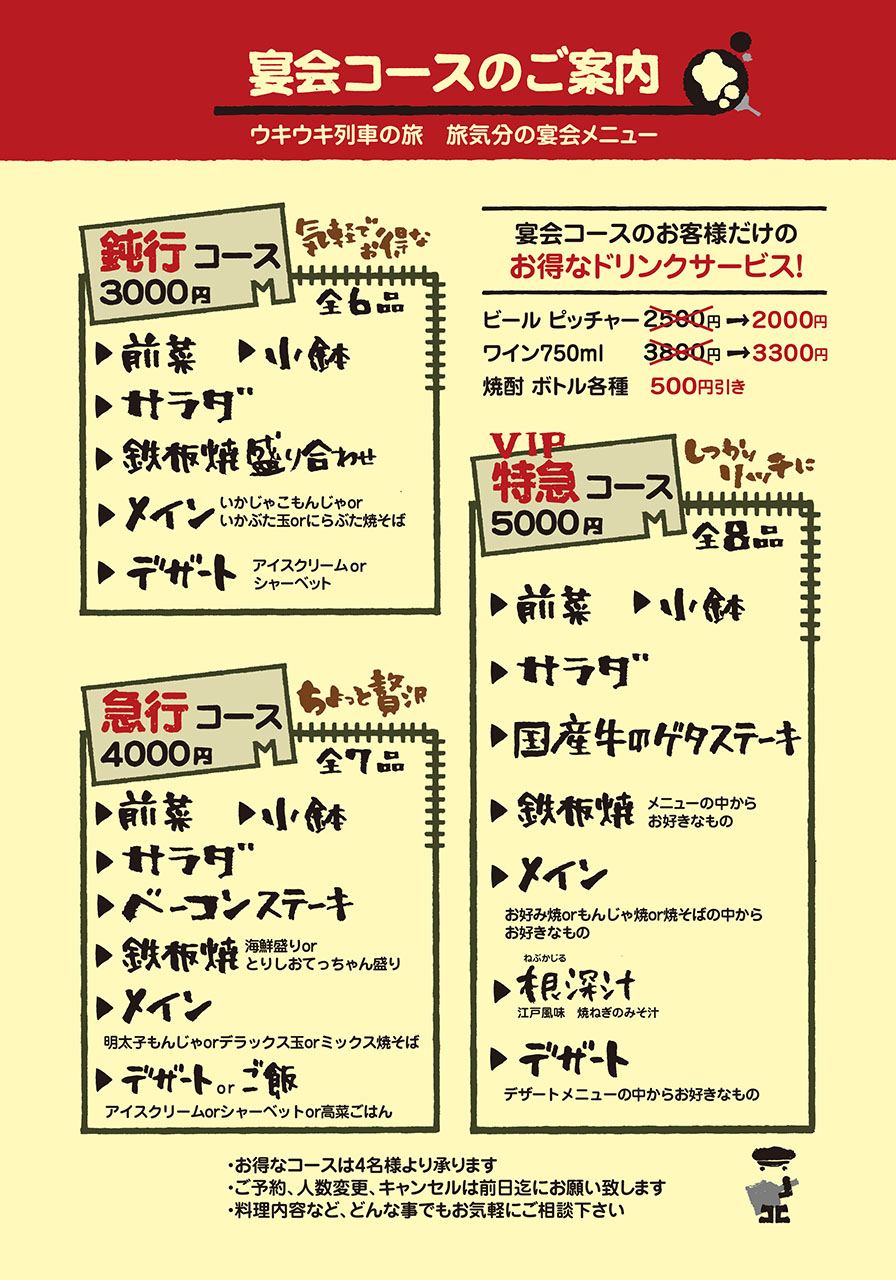 宴会コースのご案内
ウキウキ列車の旅　旅気分の宴会メニュー
鈍行コース
3000円
気軽で
お得な
全6品
▶前菜 ▶小鉢
▶サラダ
▶鉄板焼盛り合わせ
▶メイン いかじゃこもんじゃor
いかぶた玉orにらぶた焼そば
▶デザート アイスクリームor
シャーベット
急行コース
4000円
ちょっと贅沢
全7品
▶前菜 ▶小鉢
▶サラダ
▶ベーコンステーキ
▶鉄板焼 海鮮盛りor
とりしおてっちゃん盛り
▶メイン
明太子もんじゃorデラックス玉orミックス焼そば
▶デザートorご飯
アイスクリームorシャーベットor高菜ごはん
宴会コースのお客様だけの
お得なドリンクサービス!
ビール ピッチャー2500円→2000円
ワイン750ml 3800円→3300円
焼酎 ボトル各種 500円引き
VIP
特急コース
5000円
しっかり
リッチに
全8品
▶前菜 ▶小鉢
▶サラダ
▶国産牛のゲタステーキ
▶鉄板焼 メニューの中から
お好きなもの
▶メイン
お好み焼orもんじゃ焼or焼そばの中から
お好きなもの
ねぶかじる
▶根深汁
江戸風味　焼ねぎのみそ汁
▶デザート
デザートメニューの中からお好きなもの
・お得なコースは4名様より承ります
・ご予約、人数変更、キャンセルは前日迄にお願い致します
・料理内容など、どんな事でもお気軽にご相談下さい